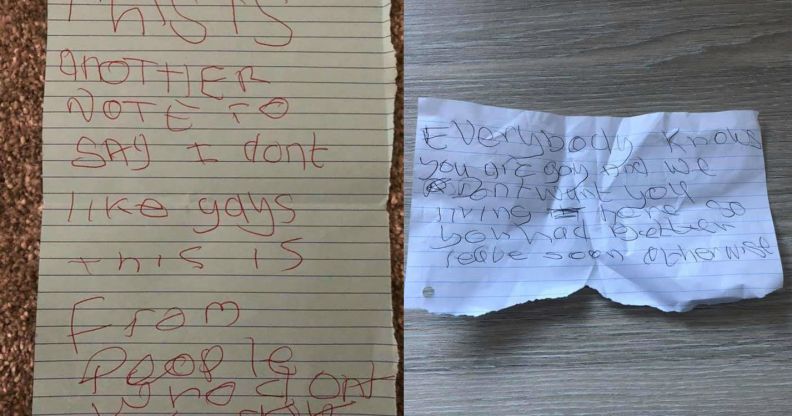 THIS IS
ANOTHER
NOTE TO
SAY I dont
like gays
this is
From
People
who dont
EVerybody Knows
you are gay and we
dont want you
living here so
you had better
leave soon otherwise